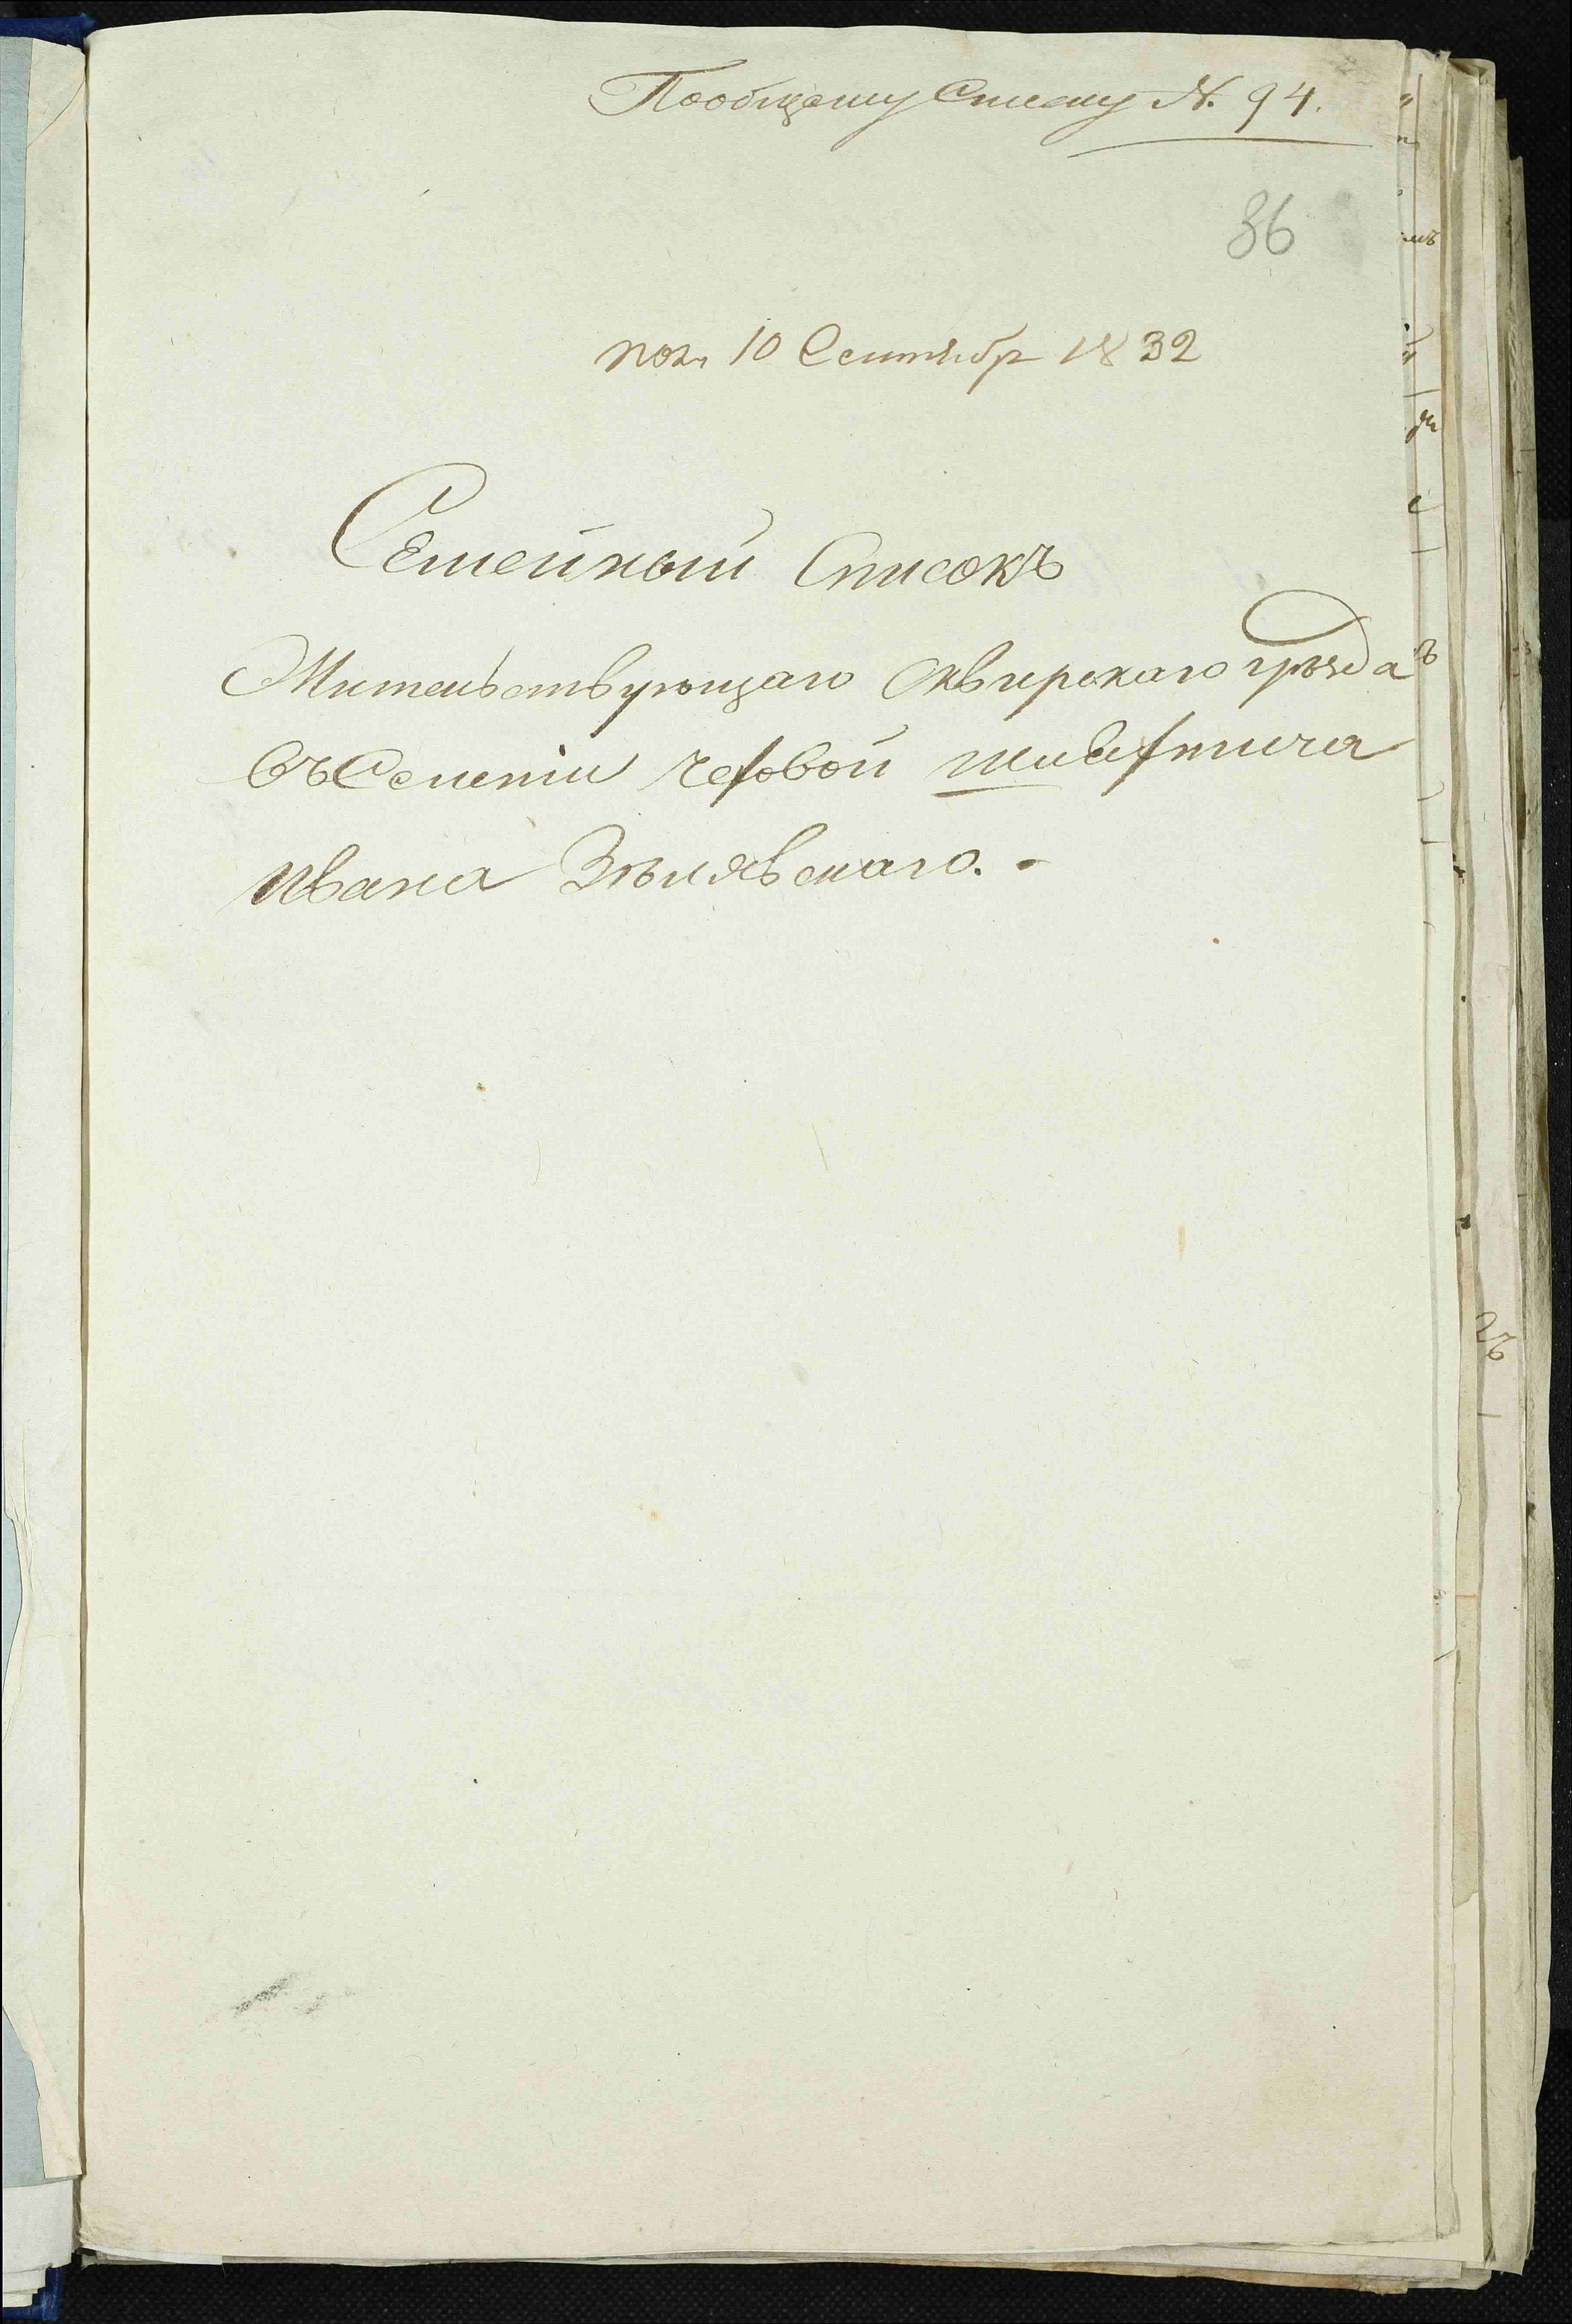 Пообщему Списку N. 94.
36
пол. 10 Сентября 1832
Семейный Списокъ
Жительствующаго Сквирскаго уѣзда
въ Селеніи Чесовой шляхтича
Ивана Зѣлявскаго.